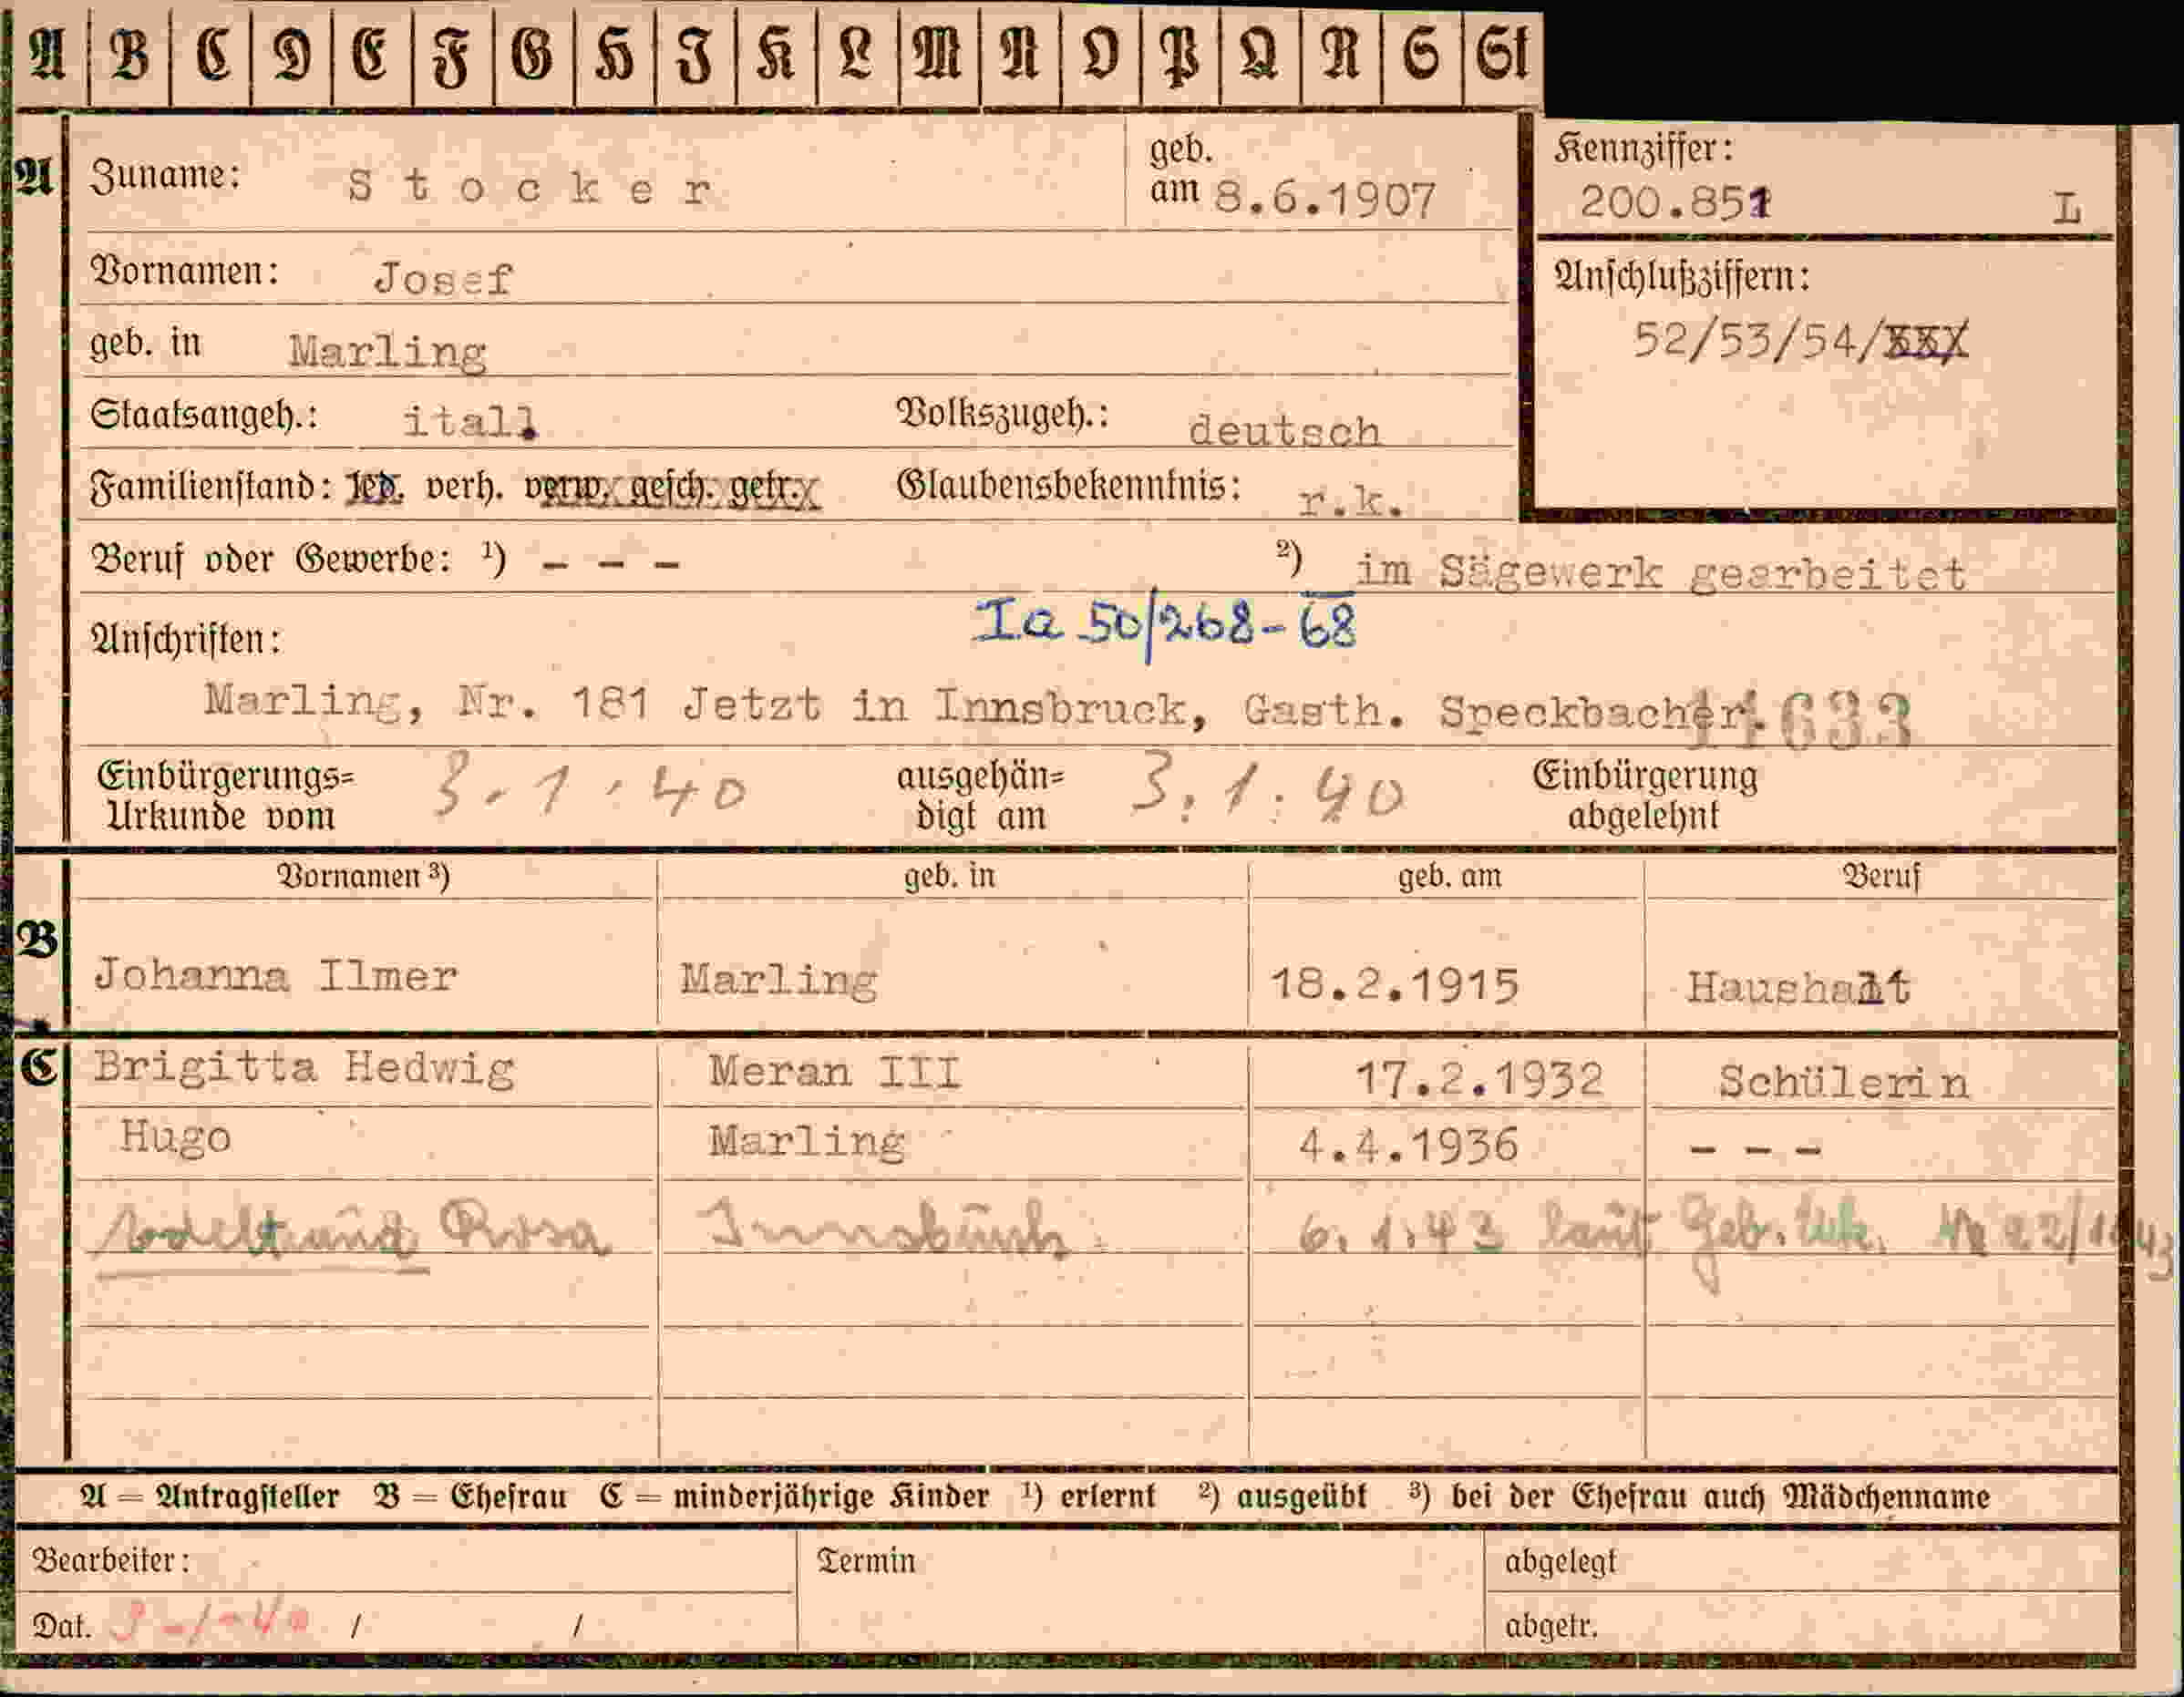 A B C D E F G H I K L M N O P Q R S St
A Zuname: Stocker geb. am 8.6.1907
Kennziffer: 200.851 L
Vornamen: Josef
Anschlußziffern: 52/53/54/
geb. in Marling
Staatsangeh.: ital. Volkszugeh.: deutsch
Familienstand: led. verh. verw. gesch. getr. Glaubensbekenntnis: r.k.
Beruf oder Gewerbe: ¹) - - - ²) im Sägewerk gearbeitet
Ia 50/268-68
Anschriften:
Marling, Nr. 181 Jetzt in Innsbruck, Gasth. Speckbacher. 14633
Einbürgerungs= Urkunde vom 3.1.40 ausgehän= digt am 3.1.40 Einbürgerung abgelehnt
Vornamen ³) geb. in geb. am Beruf
B Johanna Ilmer Marling 18.2.1915 Haushalt
C Brigitta Hedwig Meran III 17.2.1932 Schülerin
Hugo Marling 4.4.1936 - - -
Rosa Innsbruck 6.1.43 laut Geb. Urk. Nr 22/1943
A = Antragsteller B = Ehefrau C = minderjährige Kinder ¹) erlernt ²) ausgeübt ³) bei der Ehefrau auch Mädchenname
Bearbeiter: Termin abgelegt
Dat. 3-1-40 / / abgetr.